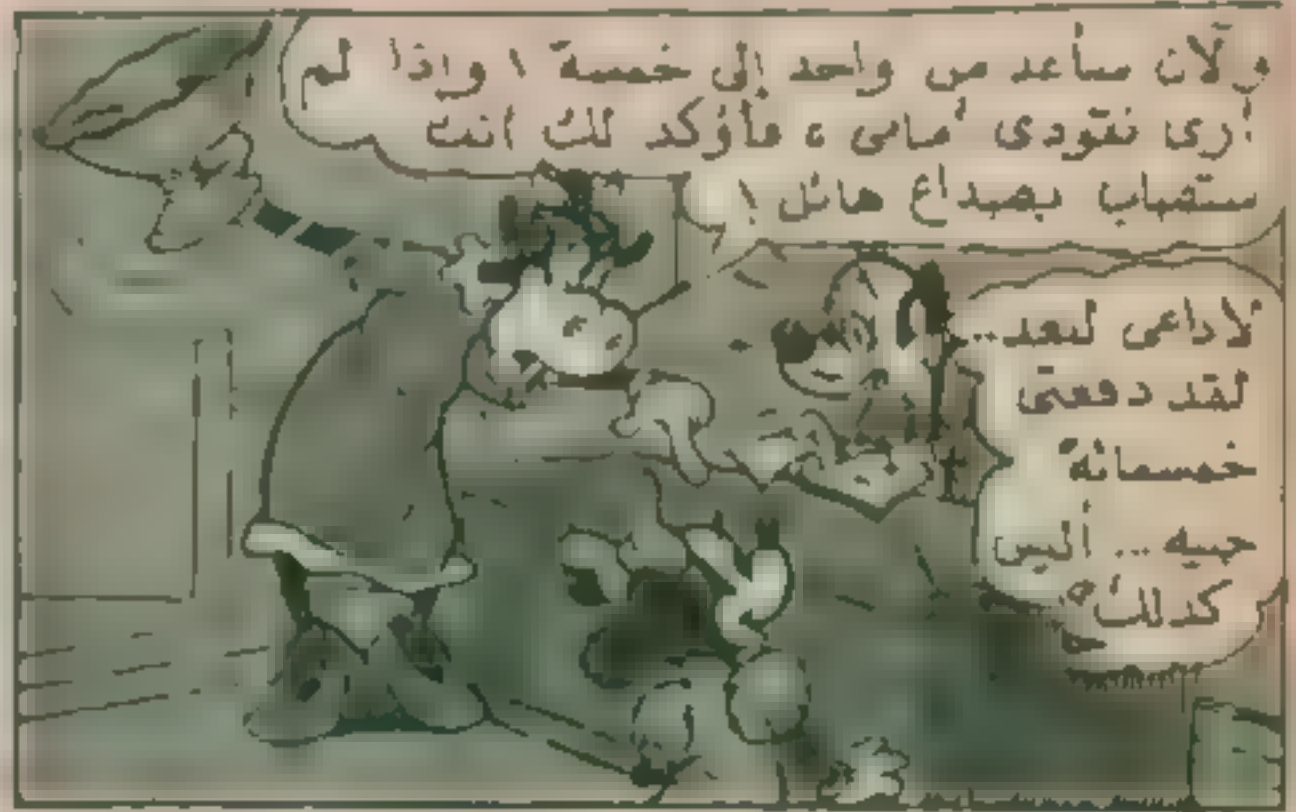 والآن سأعد من واحد إلى خمسة ! وإذا لم
أرى نقودى أمامى ، فأؤكد لك أنك
ستصاب بصداع هائل !
لاداعى للعد..
لقد دفعتى
خمسمائة
جنيه ... أليس
كذلك؟